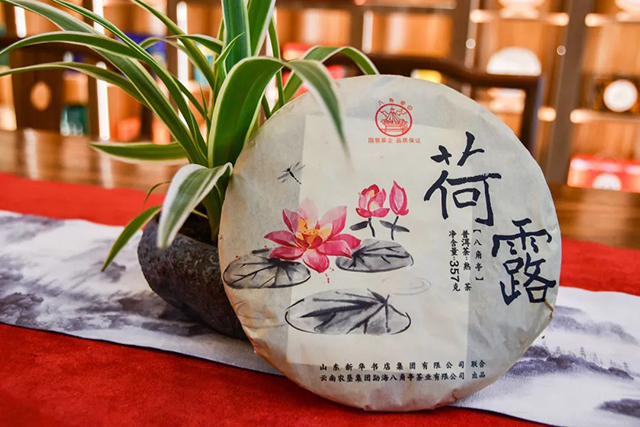 八角亭
国营茶企 品质保证
荷露
【八角亭】
普洱茶·熟茶
净含量:357克
山东新华书店集团有限公司 联合
云南农垦集团勐海八角亭茶业有限公司 出品